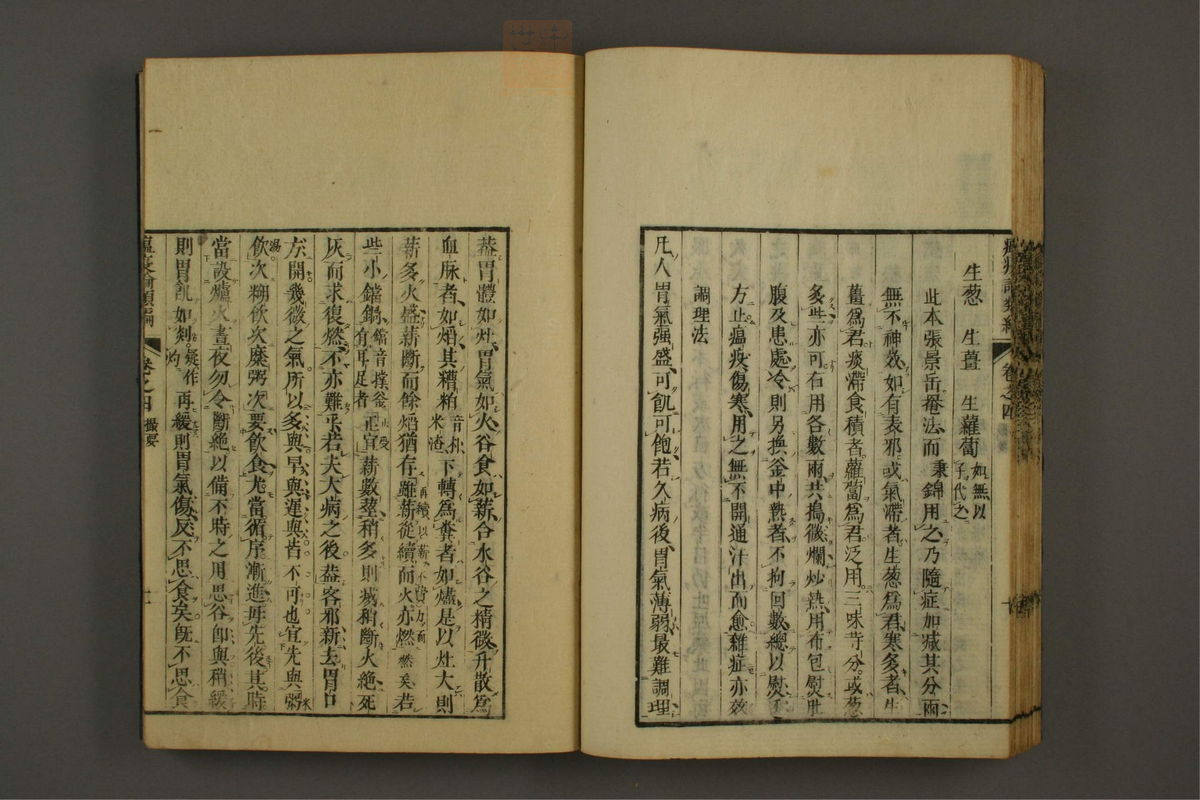 生葱　生薑　生蘿蔔 如無以子代之
此本張景岳菴法而秉錦用之乃隨症加減其分兩
無不神效如有表邪或氣滯者生葱爲君寒多者生
薑爲君痰滯食積者蘿蔔爲君泛用三味等分或葱
多些亦可右用各數兩共搗微爛炒熱用布包熨肚
腹及患處冷則另換釜中熱者不拘回數總以熨至
方止瘟疫傷寒用之無不開通汗出而愈雜症亦效
調理法
凡人胃氣强盛可飢可飽若久病後胃氣薄弱最難調理
蓋胃體如灶胃氣如火谷食如薪合水谷之精微升散爲
血脉者如焰其糟粕 音朴米渣 下轉爲糞者如燼是以灶大則
薪多火盛薪斷而餘焰猶存雖薪從續而火亦燃 再續以薪不費力而燃矣 若
些小鐺鍋 鐺音撐釜有耳足者 正宜薪數莖稍多則滅稍斷火絶死
灰而求復燃不亦難乎若夫大病之後蓋客邪新去胃口
方開幾微之氣所以多與早與遲與皆不可也宜先與粥
飲 湯 次糊飲次糜粥次要飲食尤當循序漸進毋先後其時
當設爐火晝夜勿令斷絶以備不時之用思谷即與稍緩
則胃飢如剡 疑作灼 再緩則胃氣傷反不思食矣既不思食
瘟疫論類編　卷之四　撮要　十一